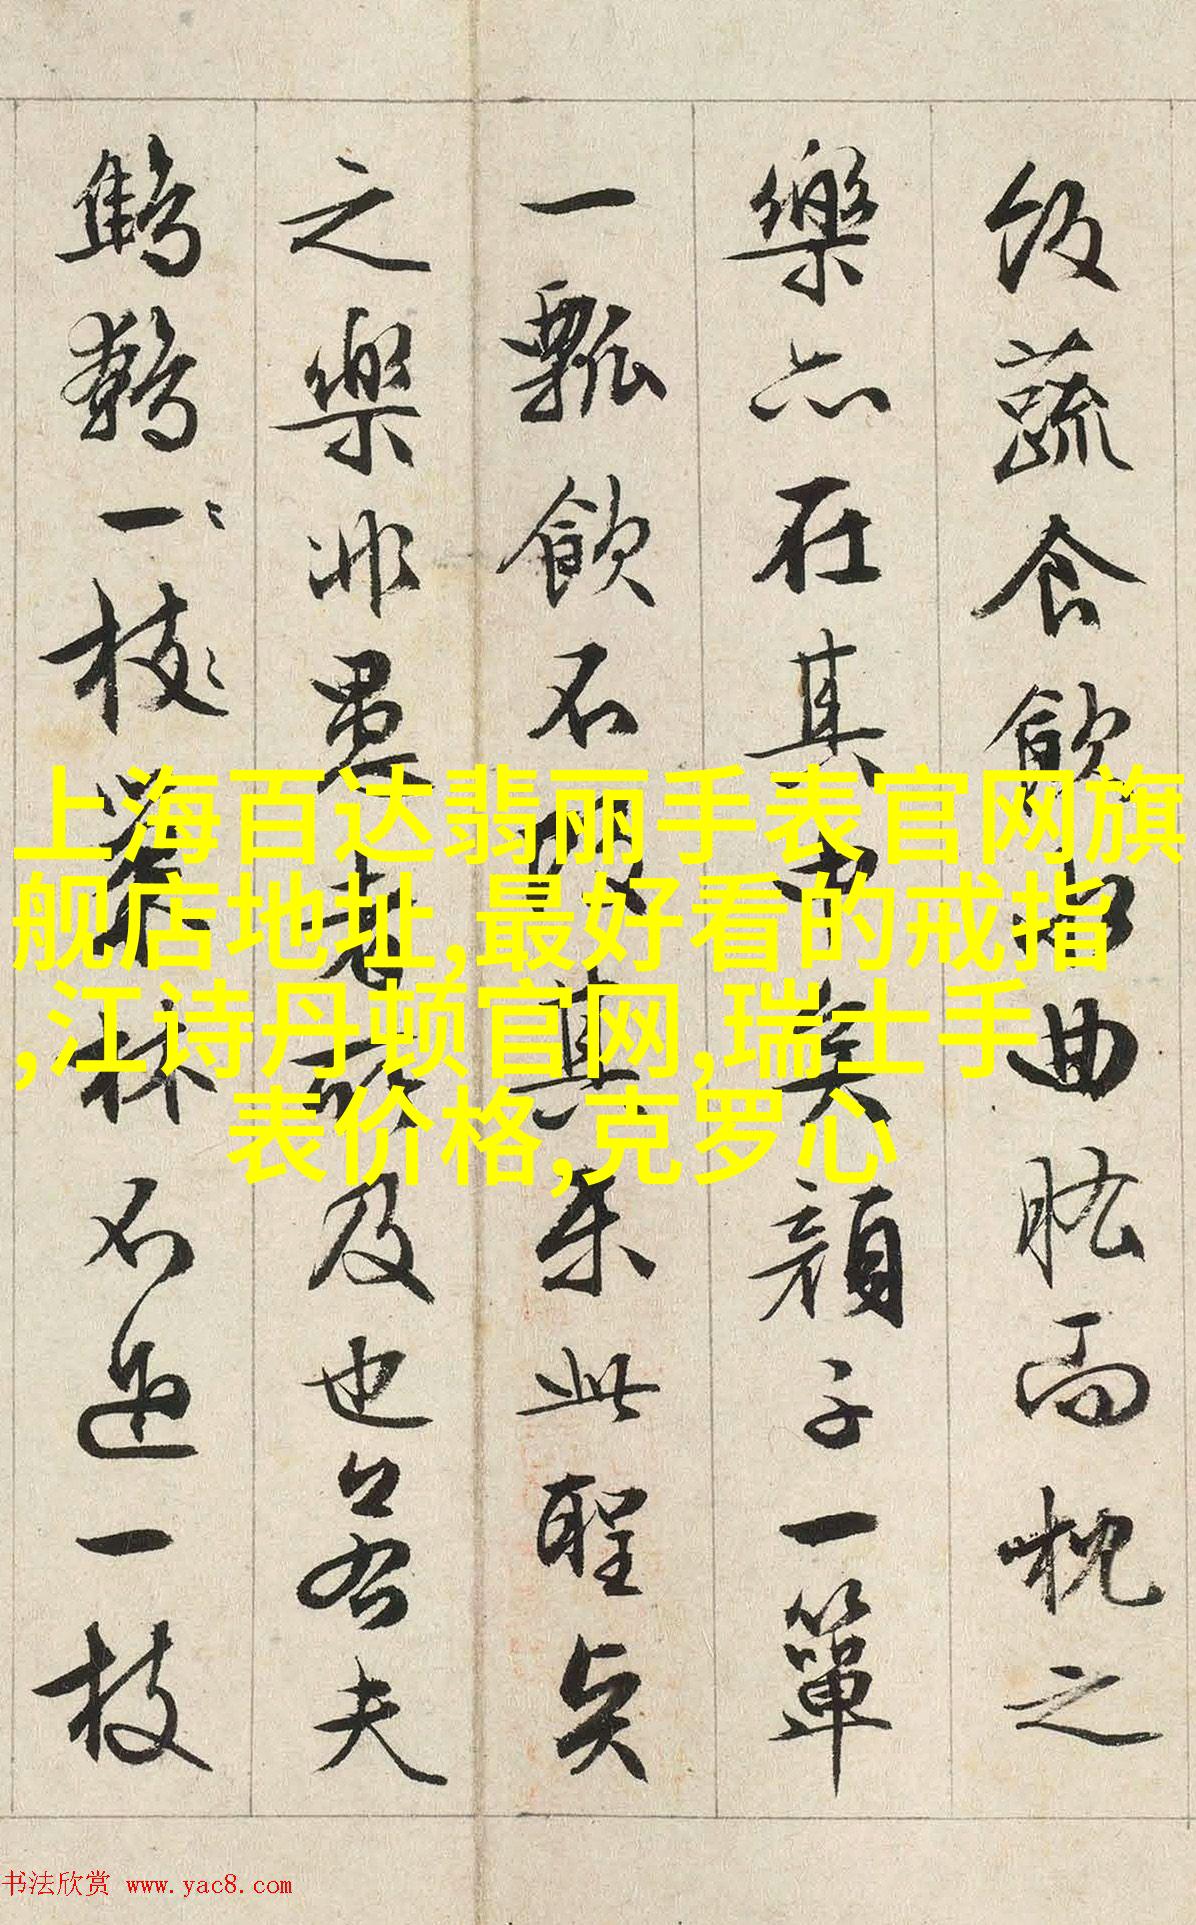 飯蔬食飲水曲肱而枕之
樂亦在其中矣顏子一簞
一瓢飲不改其樂此聖賢
之樂非愚者所及也若夫
鷦鷯一枝巢林不過一枝
上海百达翡丽手表官网旗
舰店地址,最好看的戒指
,江诗丹顿官网,瑞士手
表价格,克罗心
书法欣赏 www.yac8.com